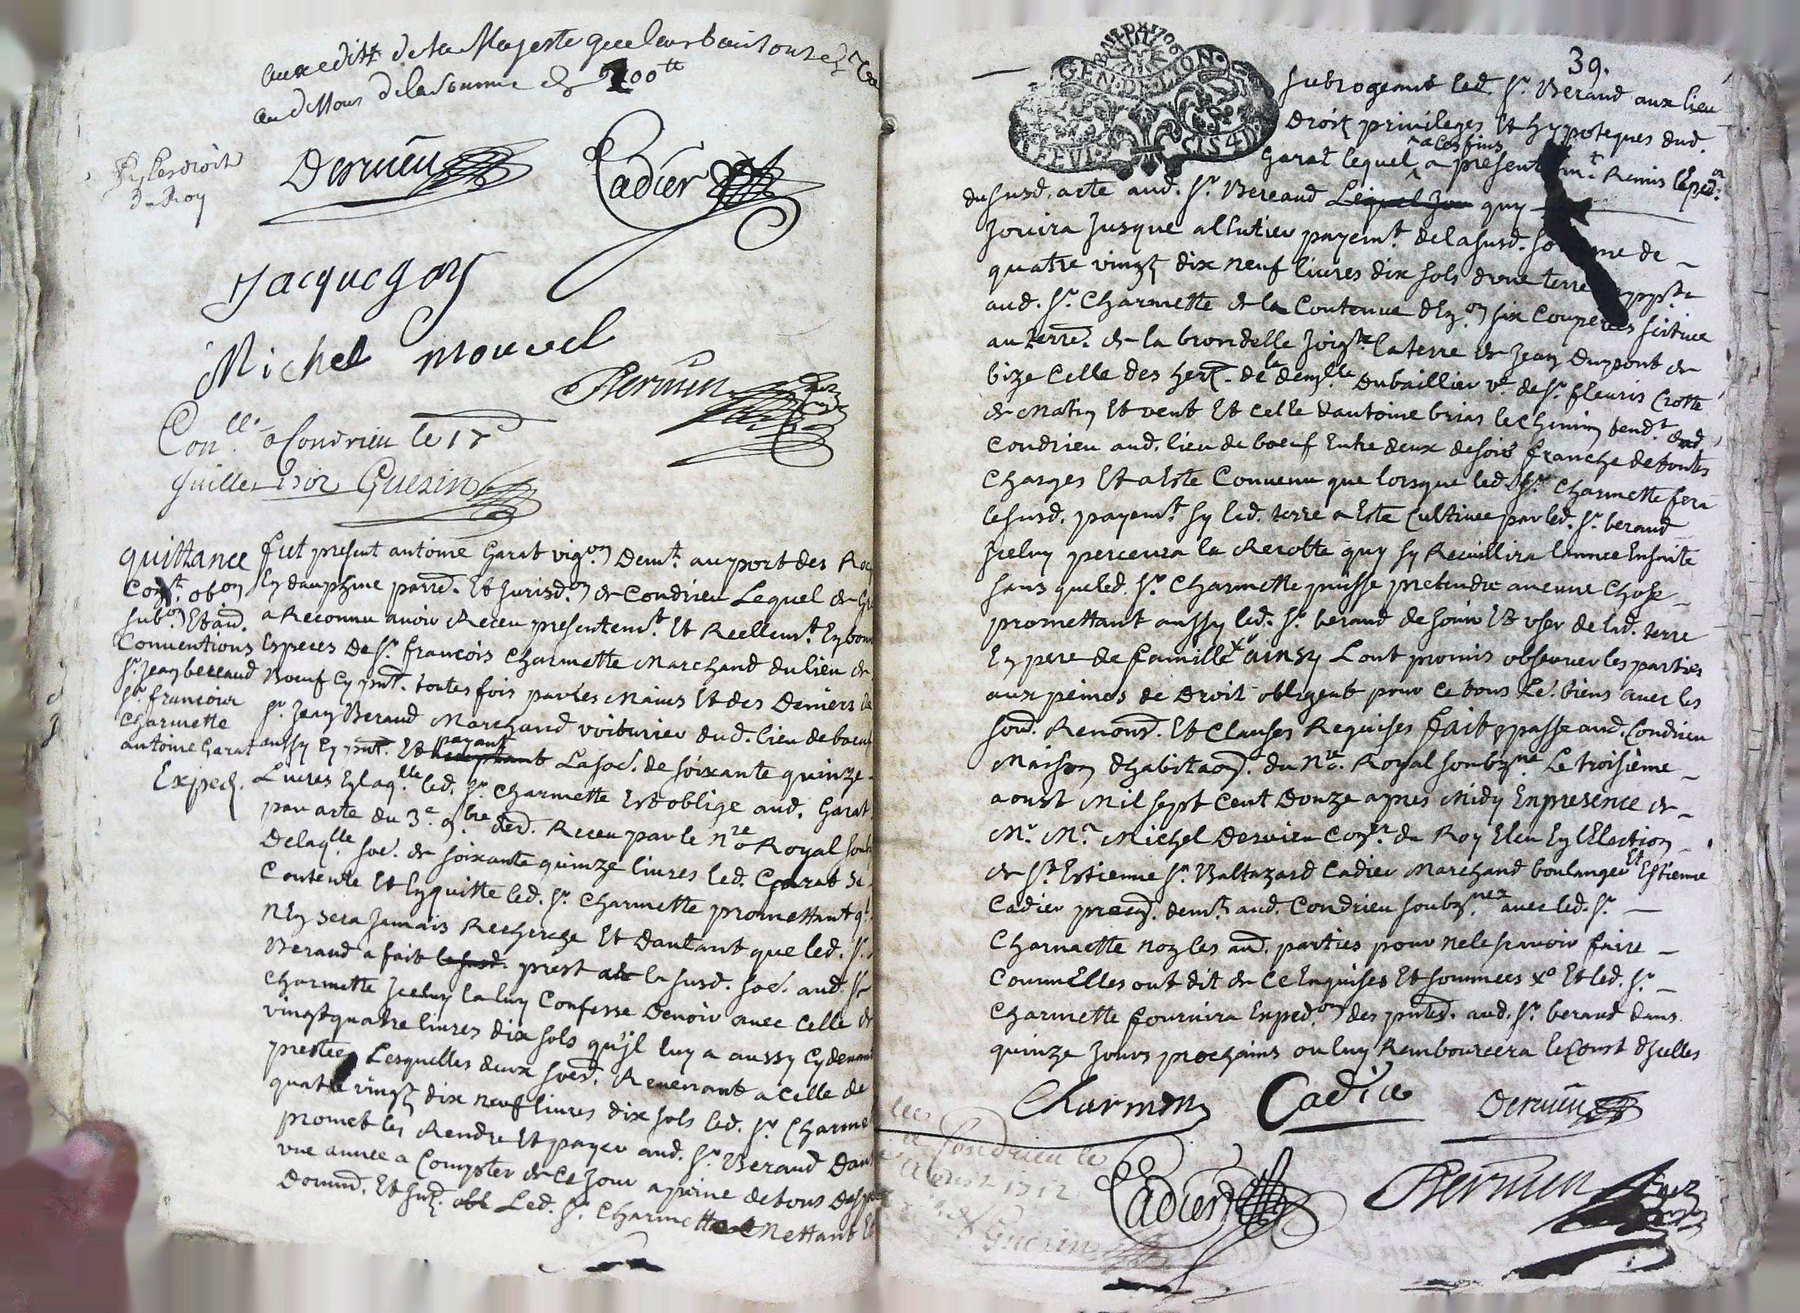 aux edist de sa Majesté que leur bail soit
au dessous de la somme de 200tt
Dervieu
Cadier
sy les droits
du Roy
Jacque goy
Michel mouvel
Dervieu
Con.lle a Condrieu le 17
Guerin
quittance
obon
subon Et aud.
Conventions
sr. Jean beraud
sr. francois
Charmette
antoine Garat
Exped.
fut present antoine Garat vigon demt. au port des
En dauphine parre. Et Jurisdon de Condrieu Lequel de
a Reconnu avoir Receu presentemt. Et Reellemt. En
Especes de sr. francois Charmette Marchand du lieu de
Boeuf Cy pnt. toutes fois par les Mains Et des Deniers de
sr. Jean Beraud Marchand voiturier dud. lieu de boeuf
aussy Cy pnt. Et payant La soe. de soixante quinze
Livres En laqlle led. sr. Charmette Est oblige aud. Garat
par acte du 3e 9bre derd. Receu par le nre Royal
Delaqlle soe. de soixante quinze livres led. Garat se
Contente Et En quitte led. sr. Charmette promettant
N'En sera Jamais Recherche Et Dautant que led. sr.
Beraud a fait prest la susd. soe. aud. sr
Charmette Jceluy la luy Confesse Devoir avec Celle de
vingt quatre livres dix sols qu'jl luy a aussy Cy devant
prestée Lesquelles deux soes. Revenant a Celle de
quatre vingt dix neuf livres dix sols led. sr. Charmette
promet les Rendre Et payer aud. sr. Beraud Dans
une année a Compter de Ce Jour a peine de tous
Led. sr. Charmette
39.
GEN. DE LION
subrogeant led. sr. Beraud aux lieu
Droit privileges Et hypoteques dud.
Garat lequel a ces fins a presentemt. Remis l'Expedon
du susd. acte aud. sr. Beraud Lequel quy
Jouira Jusque a l'Entier payemt. de la susd. somme de
quatre vingt dix neuf livres dix sols d'une terre
aud. sr. Charmette de la Contenue d'Enon six Couperées scitue
au Terre. de la brondelle Joigte la terre de Jean Dupont de
bize Celle des hers. de la demlle Dubaillier ve. de sr. fleuris Crotte
de Matin Et vent Et celle dantoine brias le Chemin tendt. dud
Condrieu aud. lieu de boeuf Entre deux de soir franche de toutes
Charges Et a Este Convenu que lorsque led. sr. Charmette fera
le susd. payemt. sy lad. terre a Este Cultivée par led. sr. beraud
Jceluy percevra la Recolte quy sy Recuillira lannee Ensuite
sans que led. sr. Charmette puisse pretendre aucune Chose
promettant aussy led. sr. beraud de Jouir Et user de lad. terre
En pere de famille ainsy L'ont promis observer les parties
aux peines de Droit obligent pour Ce tous Le. biens avec les
soub. Renons. Et Clauses Requises fait & passe aud. Condrieu
Maison d'habitaon. du nre. Royal soubzne Le troisieme
aoust Mil sept Cent Douze apres Midy En presence de
Mr. Mr. Michel Dervieu Coner du Roy Eleu En l'Election
de St Estienne sr. Baltazard Cadier Marchand boulanger Et Estienne
Cadier praen. demt. aud. Condrieu soubznez avec led. sr.
Charmette non les aud. parties pour ne le scavoir faire
Comm'Elles ont dit de Ce Enquises Et sommees Et led. sr.
Charmette fournira Expedon des pntes. aud. sr. beraud dans
quinze Jours prochains ou luy Rembourcera le Coust d'Jcelles
Charmette
Cadier
Dervieu
Condrieu le
Aoust 1712
Cadier
Dervieu
Guerin